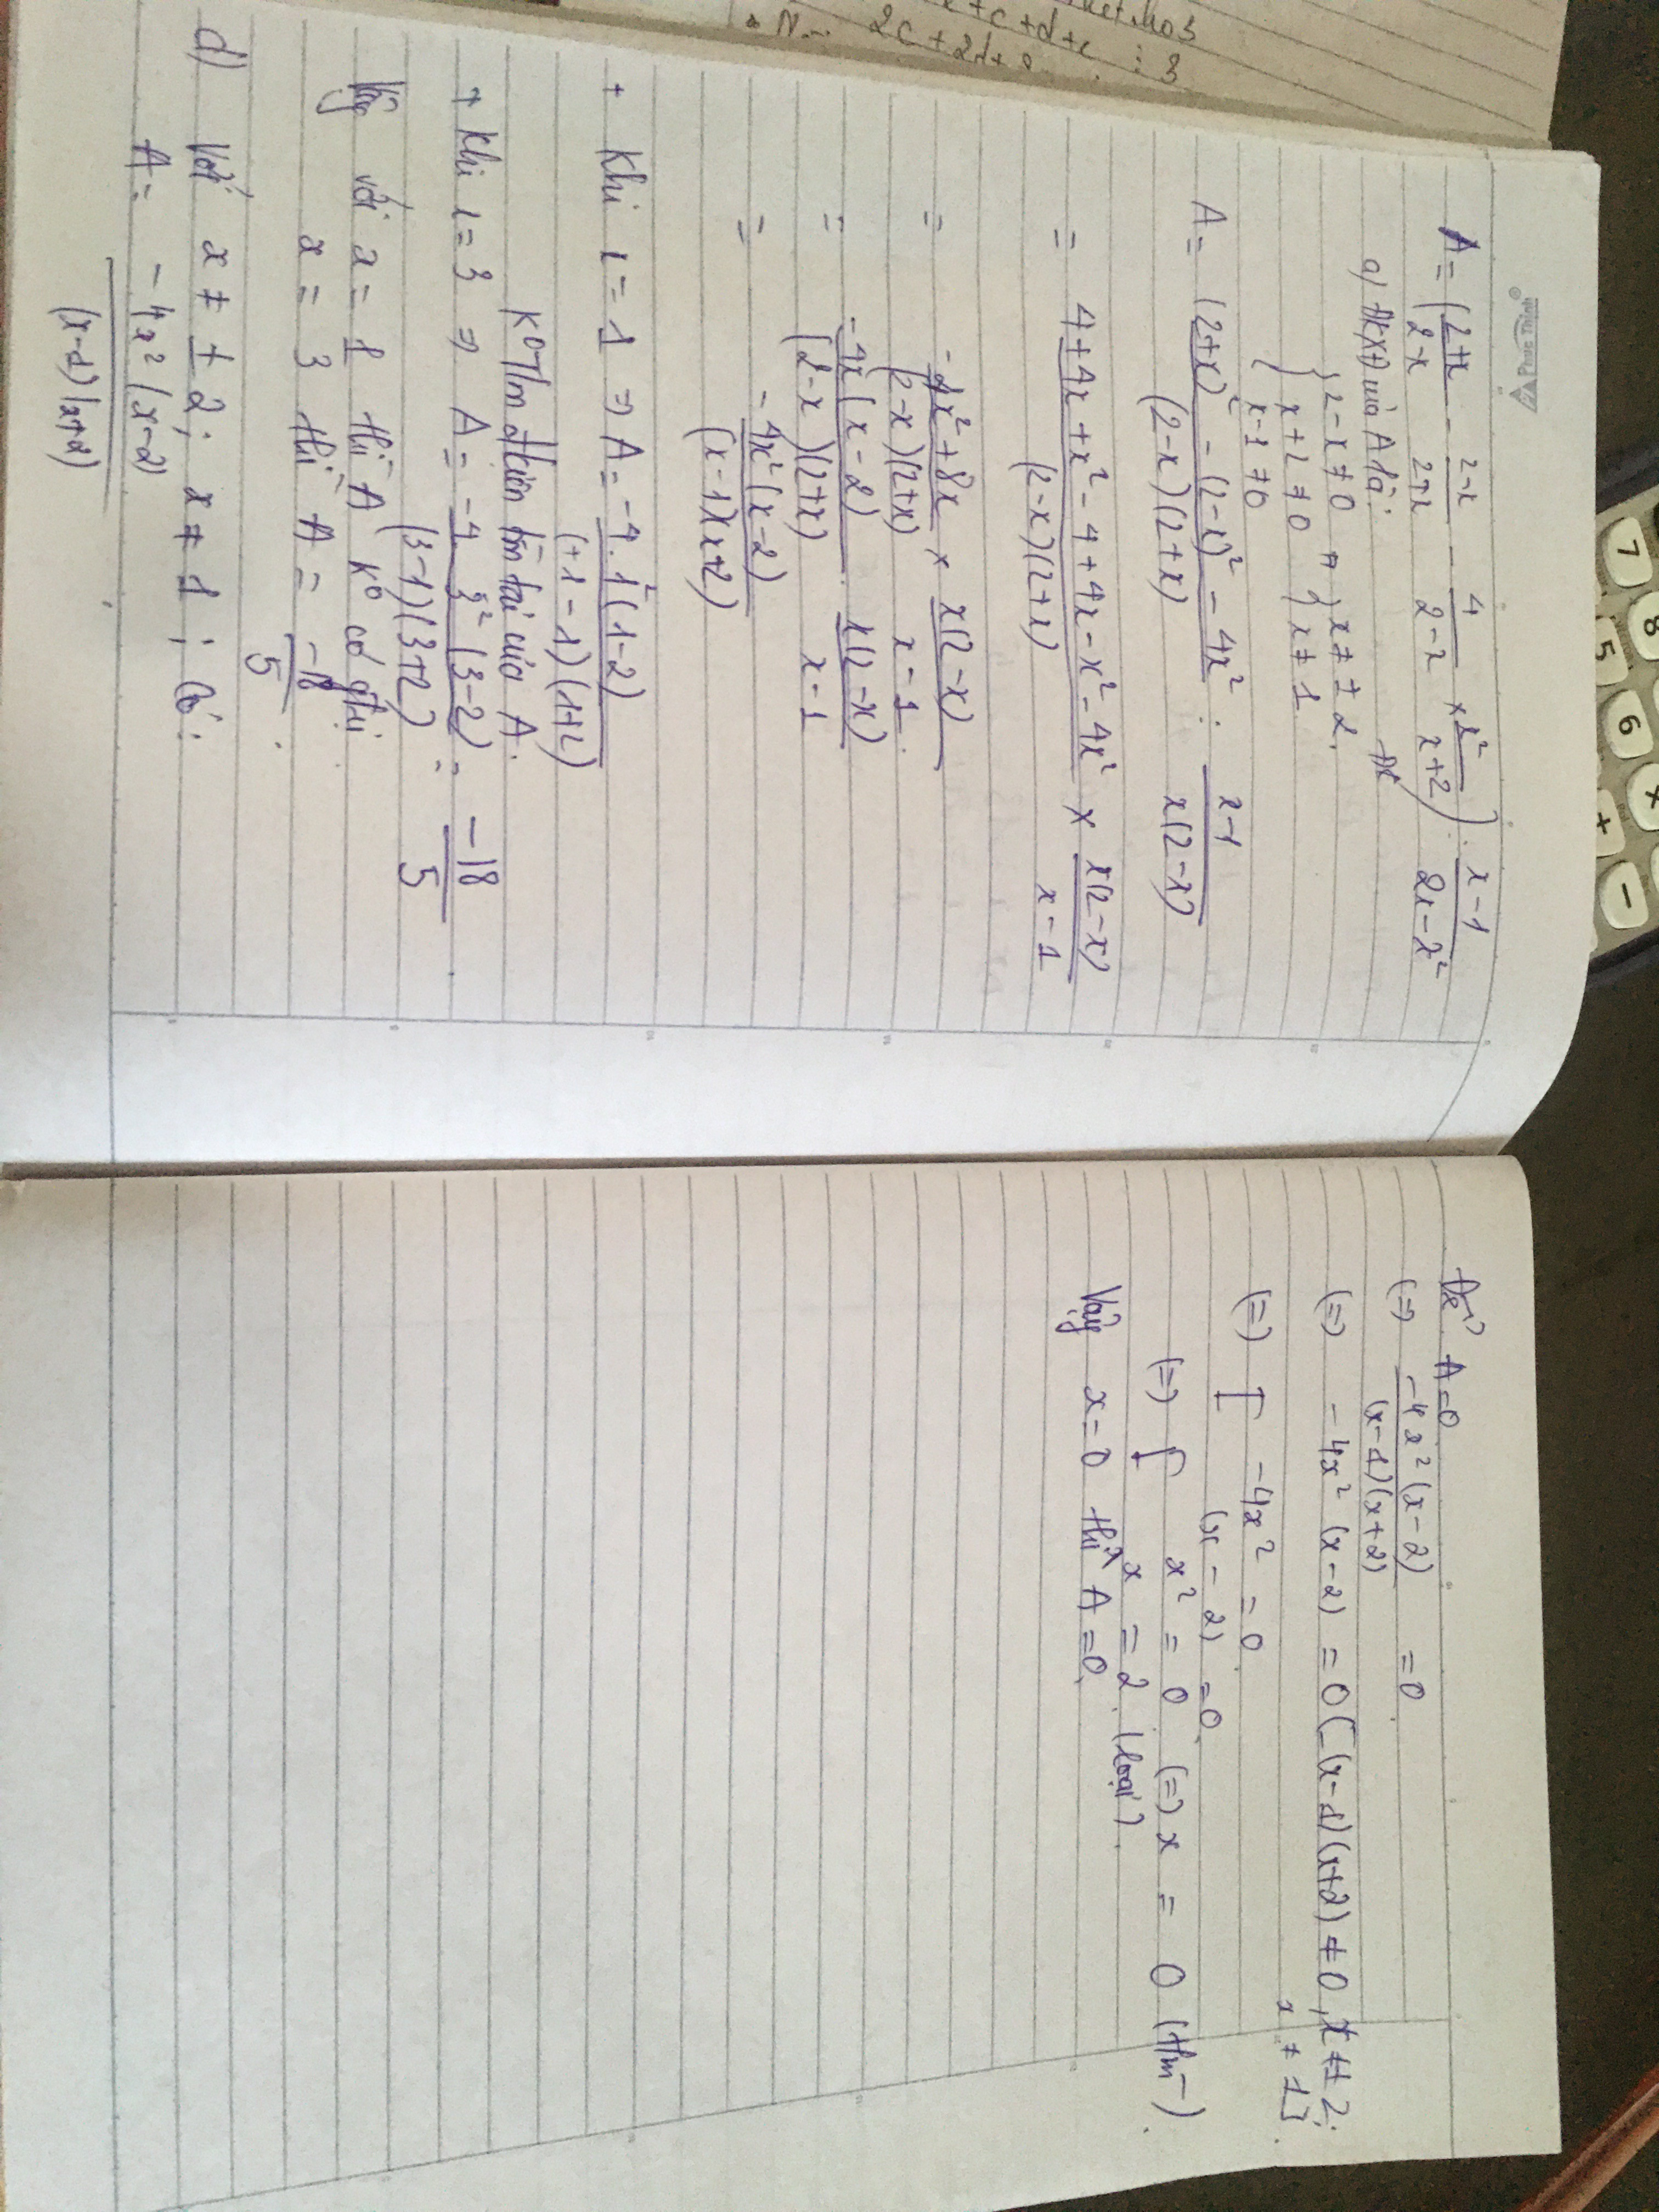 x+c+d+e
2c+2d+e : 3
Phúc Thịnh®
A = (2+x/2-x - 2-x/2+x - 4/2-x × x²/x+2) : x-1/2x-x²
a) ĐKXĐ của A là:
{ 2-x ≠ 0
x+2 ≠ 0
x-1 ≠ 0
=> { x ≠ ± 2.
x ≠ 1
A = (2+x)² - (2-x)² - 4x² / (2-x)(2+x) : x-1 / x(2-x)
= 4+4x+x²-4+4x-x²-4x² / (2-x)(2+x) × x(2-x) / x-1
= -4x²+8x / (2-x)(2+x) × x(2-x) / x-1
= -4x(x-2) / (2-x)(2+x) . x(2-x) / x-1
= -4x²(x-2) / (x-1)(x+2)
+ Khi x = 1 => A = -4.1²(1-2) / (+1-1)(1+2)
K° T/m điều kiện tồn tại của A.
+ Khi x = 3 => A = -4 3² (3-2) / (3-1)(3+2) = -18/5
Vậy với x = 1 thì A k° có gtrị
x = 3 thì A = -18/5
d) Với x ≠ ± 2; x ≠ 1; Có:
A = -4x²(x-2) / (x-1)(x+2)
Để A=0
(=) -4x²(x-2) / (x-1)(x+2) = 0.
(=) -4x² (x-2) = 0 [(x-1)(x+2) ≠ 0, x ≠ ± 2;
x ≠ 1].
(=) [ -4x² = 0
(x - 2) = 0.
(=) [ x² = 0 (=) x = 0 (t/m).
x = 2. (loại).
Vậy x=0 thì A=0.
7
8
5
6
×
+
-